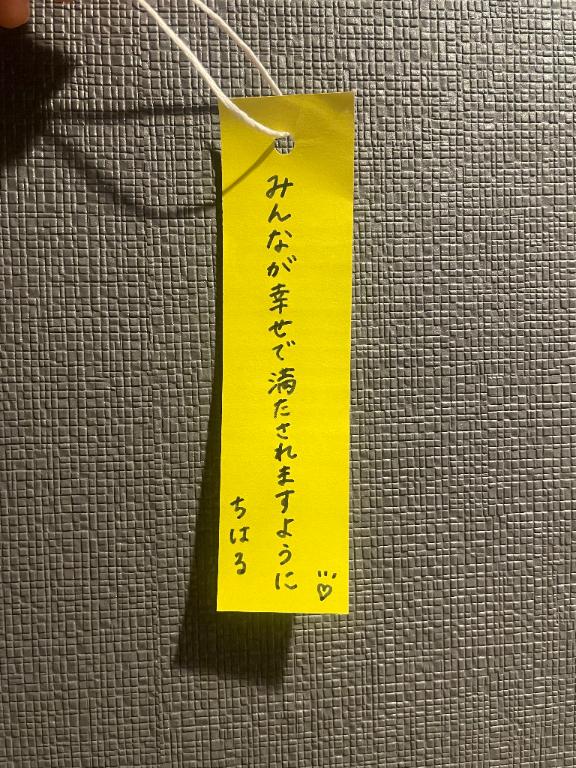 みんなが幸せで満たされますように
ちはる